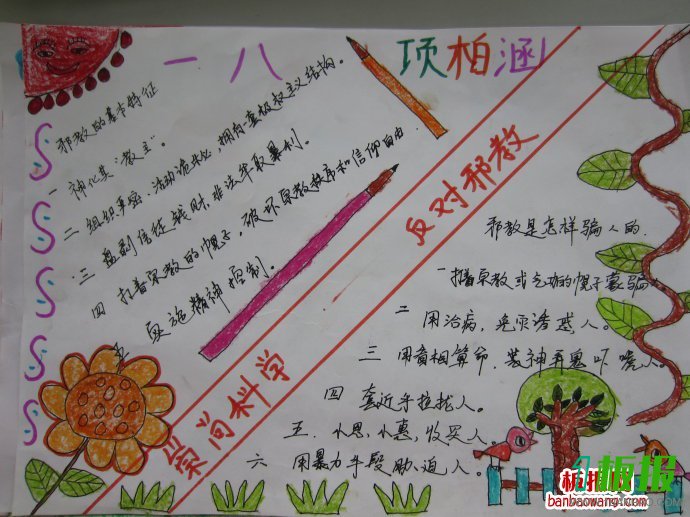 一八
项柏涵
邪教的基本特征
一 神化其“教主”。
二 组织严密,活动诡秘,拥有一套极权主义结构。
三 盘剥信徒钱财,非法牟取暴利。
四 打着宗教的幌子,破坏宗教秩序和信仰自由.
五 实施精神控制。
崇尚科学
反对邪教
邪教是怎样骗人的.
一 打着宗教或气功的幌子蒙骗
二 用治病,免灾诱惑人。
三 用看相算命,装神弄鬼吓唬人。
四 套近乎拉拢人。
五.小恩,小惠,收买人。
六 用暴力手段胁迫人。
板报
banbaowang.com